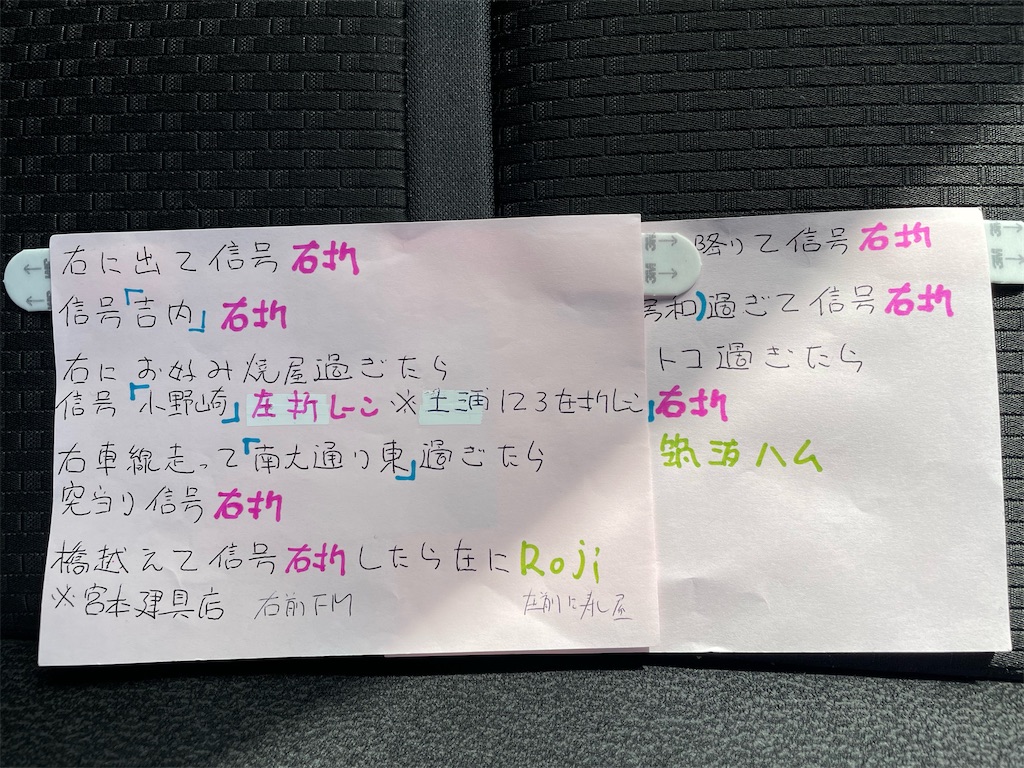 右に出て信号右折
信号「吉内」右折
右にお好み焼屋過ぎたら
信号「小野崎」左折レーン ※土浦123左折レーン
右車線走って「南大通り東」過ぎたら
突当り信号右折
橋越えて信号右折したら左にRoji
※宮本建具店 右前FM 左前に寿し屋
降りて信号右折
和)過ぎて信号右折
トコ過ぎたら
」右折
筑波ハム